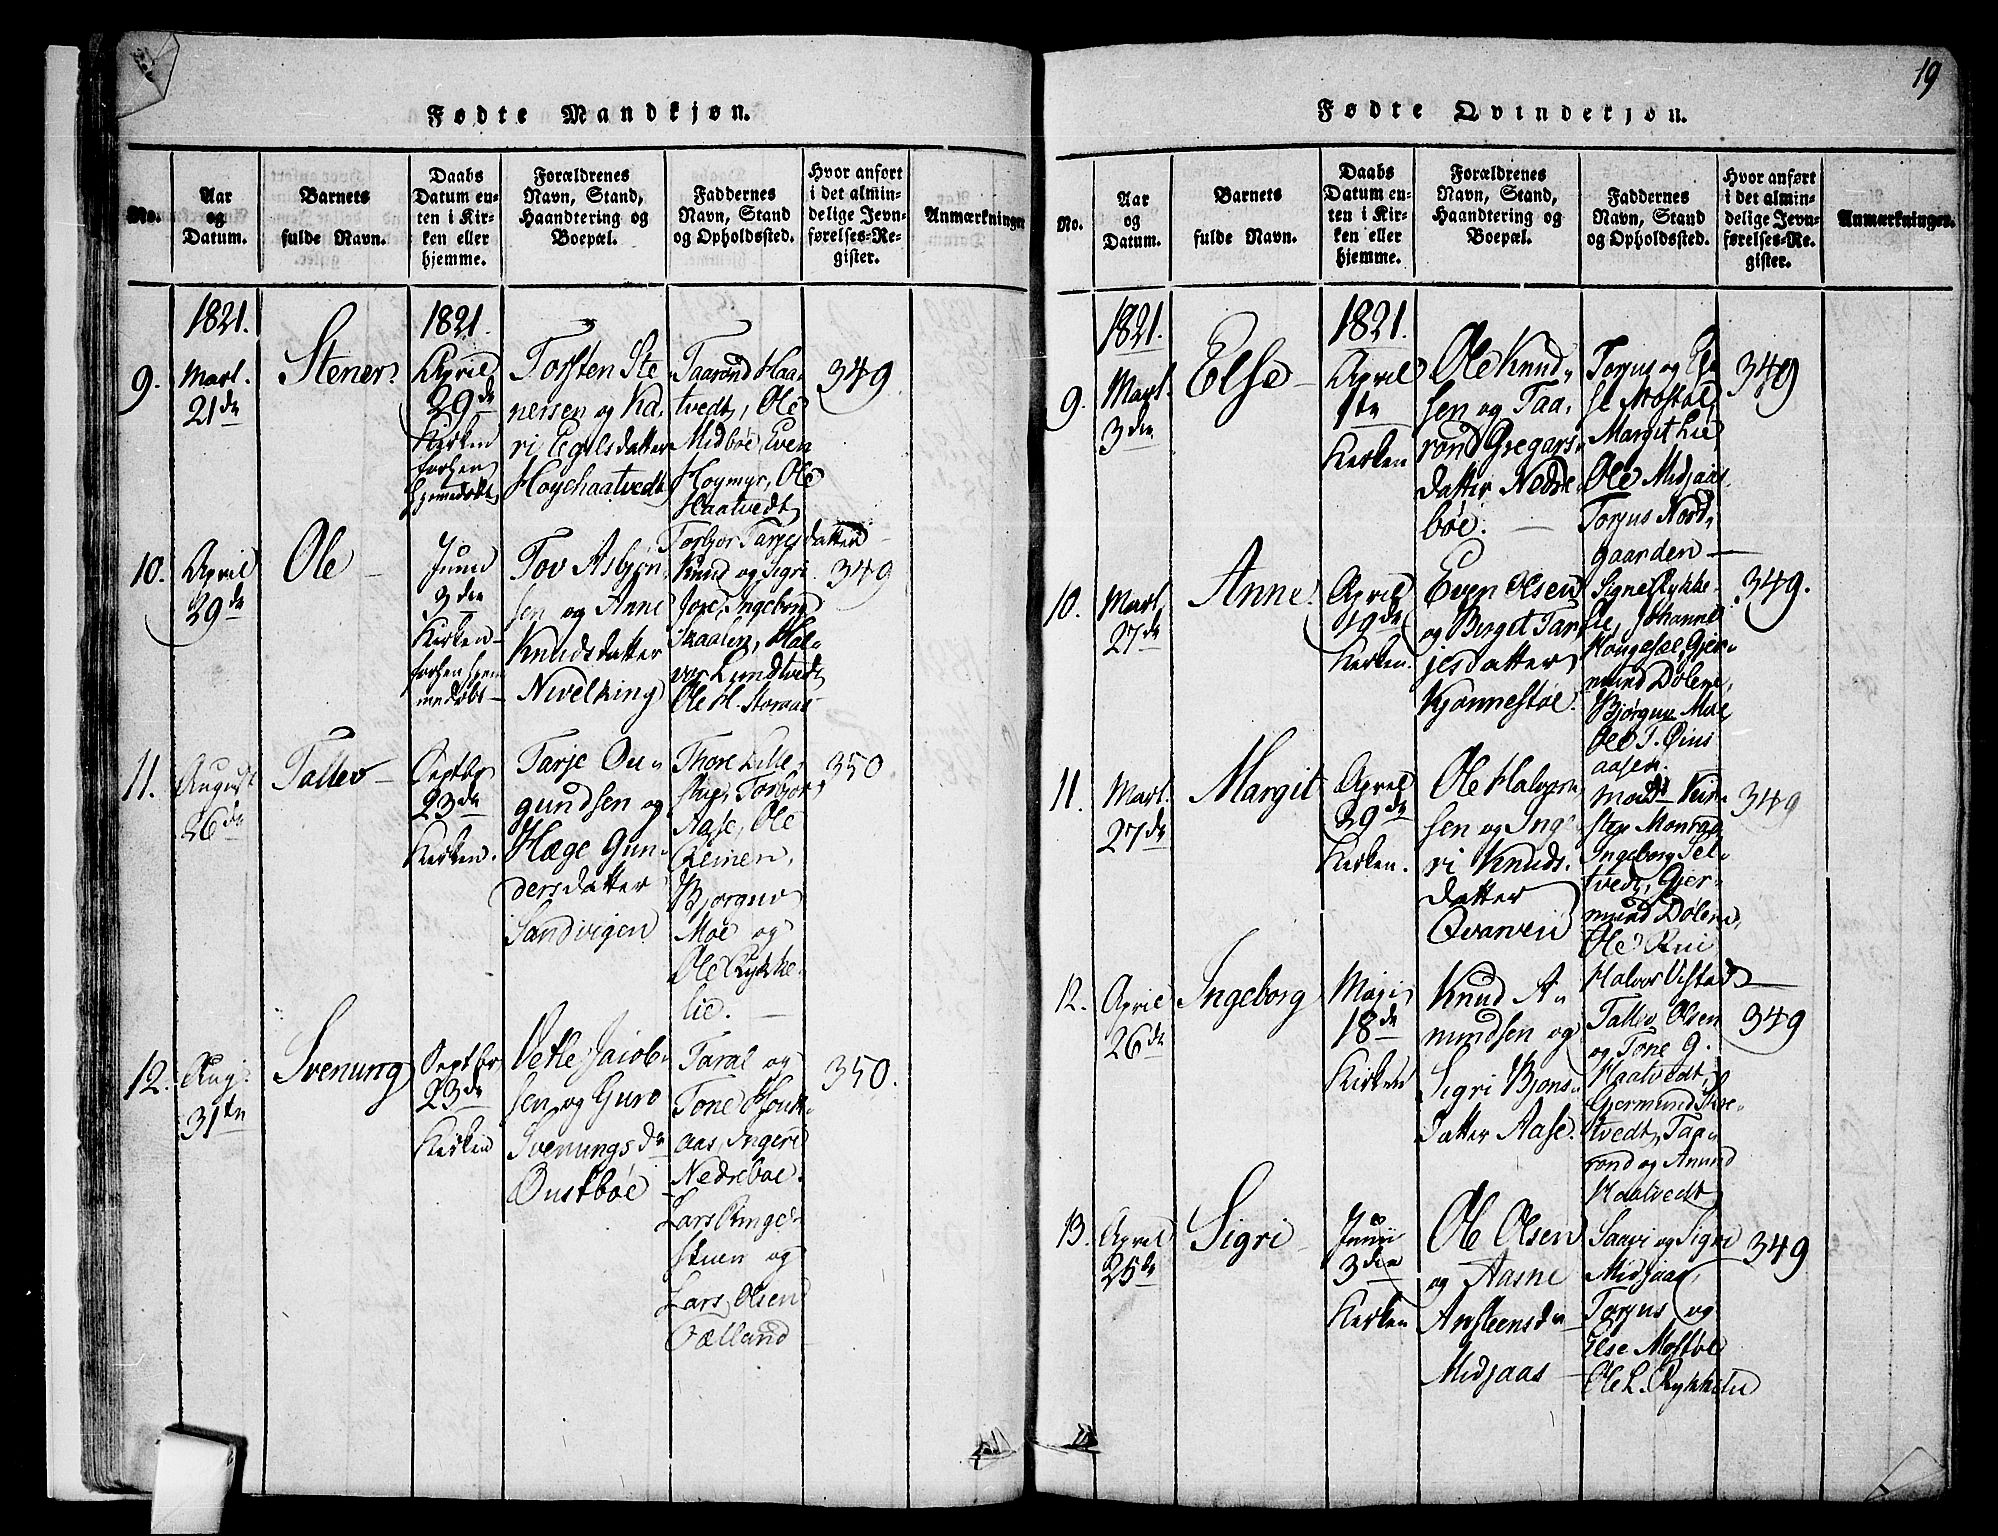 19
Fødte Mandkjøn.
No.
Aar
og
Datum.
Barnets
fulde Navn.
Daabs
Datum en-
ten i Kir-
ken eller
hjemme.
Forældrenes
Navn, Stand,
Haandtering og
Boepæl.
Faddernes
Navn, Stand
og Opholdssted.
Hvor anført
i det almin-
delige Jevn-
førelses-Re-
gister.
Anmærkninger
1821.
9.
Mart.
21de
Stener.
1821.
April
29de
Kirken
forhen
hjemmedøbt
Torsten Ste
nersen og Ka
ri Egilsdatter
Høyehaatvedt
Taarond Haa
tvedt, Ole
Midbøe, Even
Høymyr, Ole
Haatvedt,
Torbjør Tarjesdatter
349
10.
April
29de
Ole
Junii
3die
Kirken
forhen hjem
medøbt
Tov Asbjøn
sen og Anne
Knudsdatter
Nivelking
Knud og Sigri
Jore, Ingeborg
Skaalen, Hal
vor Lundtvedt
Ole H. Storaas
349
11.
August
26de
Tallev
Septbr
23de
Kirken.
Tarje Ou
gundsen og
Hæge Gun
dersdatter
Sandvigen
Thore Lille
Torbjør
Aase, Ole
Reinen,
Bjørguv
Moe og
Ole Rykke
lie.
350
12.
Aug.
31te
Svenung
Septbr
23de
Kirken
Vetle Jacob
sen og Guro
Svenungsdr
Oustbøe
Taral og
Tone Houk
aas, Ingeri
Nedrebøe.
Lars Ringe
stuen og
Lars Olsen
Fælland
350.
Fødte Qvindekjøn.
No.
Aar
og
Datum.
Barnets
fulde Navn.
Daabs
Datum en-
ten i Kir-
ken eller
hjemme.
Forældrenes
Navn, Stand,
Haandtering og
Boepæl.
Faddernes
Navn, Stand
og Opholdssted.
Hvor anført
i det almin-
delige Jevn-
førelses-Re-
gister.
Anmærkninger.
1821.
9.
Mart.
3die
Else
1821.
April
1te
Kirken
Ole Knud
sen og Taa
rond Gregars
datter Nedre
bøe.
Torjus og El
se Mostøl
Margit Lie
Ole Midjaas
Torjus Nord
gaarden
349
10.
Mart.
27de
Anne.
April
19de
Kirken.
Even Olsen
og Berget Tar
jesdatter
Kjønnestøe.
Signe Rykke
lie, Johannes
Hougeset, Gjer
mund Dolene,
Bjørguv Moe
Ole T. Øius
aasen.
349.
11.
Mart.
27de
Margit
April
29de
Kirken.
Ole Halvors
sen og Ing
ri Knuds
datter
Qvarven
Ingeborg Tel
tvedt, Gjer
mund Dolene,
Ole Rui
349
12.
April
26de
Ingeborg
Maji
18de
Kirken
Knud A
mundsen og
Sigri Bjøns
datter Aase.
Halvor Ufstad
Tallev Olsen
og Tone G.
Haatvedt,
Gjermund Skre
tvedt, Taa
rond og Anund
Haatvedt
349
13.
April
25de
Sigri
Junii
3die
Kirken
Ole Olsen
og Aasne
Ansteensdr
Midjaas
Saavi og Sigri
Midjaas,
Torjus og
Else Mostøl
Ole L. Rykkelie
349